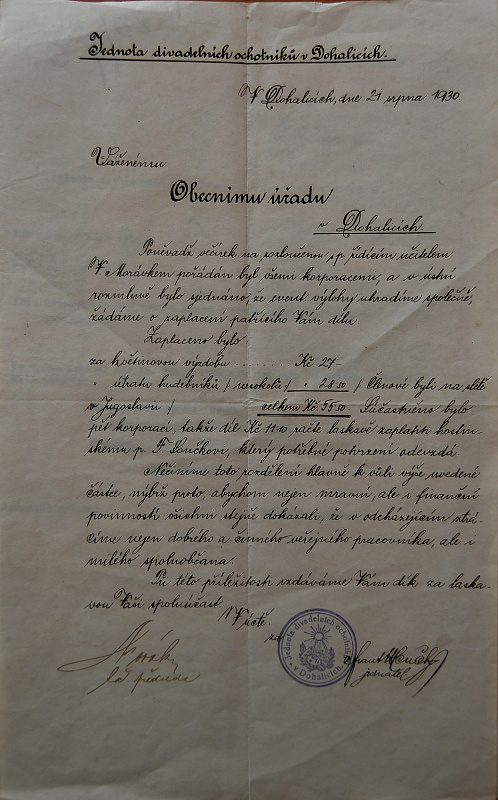 Jednota divadelních ochotníků v Dohalicích.
V Dohalicích, dne 21. srpna 1930.
Váženému
Obecnímu úřadu
v Dohalicích.
Poněvadž večírek na rozloučenou sp. řídícím učitelem
V. Morávkem pořádán byl všemi korporacemi, a v ústní
rozmluvě bylo sjednáno, že event. výlohy uhradíme společně,
žádáme o zaplacení patřícího Vám dílu.
Zaplaceno bylo:
za květinovou výzdobu ........ Kč 27·-
" útratu hudebníků / " 28·50 / Členové byli na sletě
v Jugoslavii / celkem Kč 55·50. Súčastněno bylo
pět korporací, takže díl Kč 11·10 račte laskavě zaplatit hostin-
skému p. F. Součkovi, který potřebné potvrzení odevzdá.
Nečiníme toto rozdělení hlavně k vůli výše uvedené
částce, nýbrž proto, abychom nejen mravní, ale i finanční
povinností všichni stejně dokázali, že v odcházejícím ztrá-
címe nejen dobrého a činného veřejného pracovníka, ale i
milého spoluobčana.
Při této příležitosti vzdáváme Vám dík za laska-
vou Vaši spoluúčast.
V úctě
za
Jednota divadelních ochotníků v Dohalicích.
Novák
t.č. předseda
Frant.
jednatel